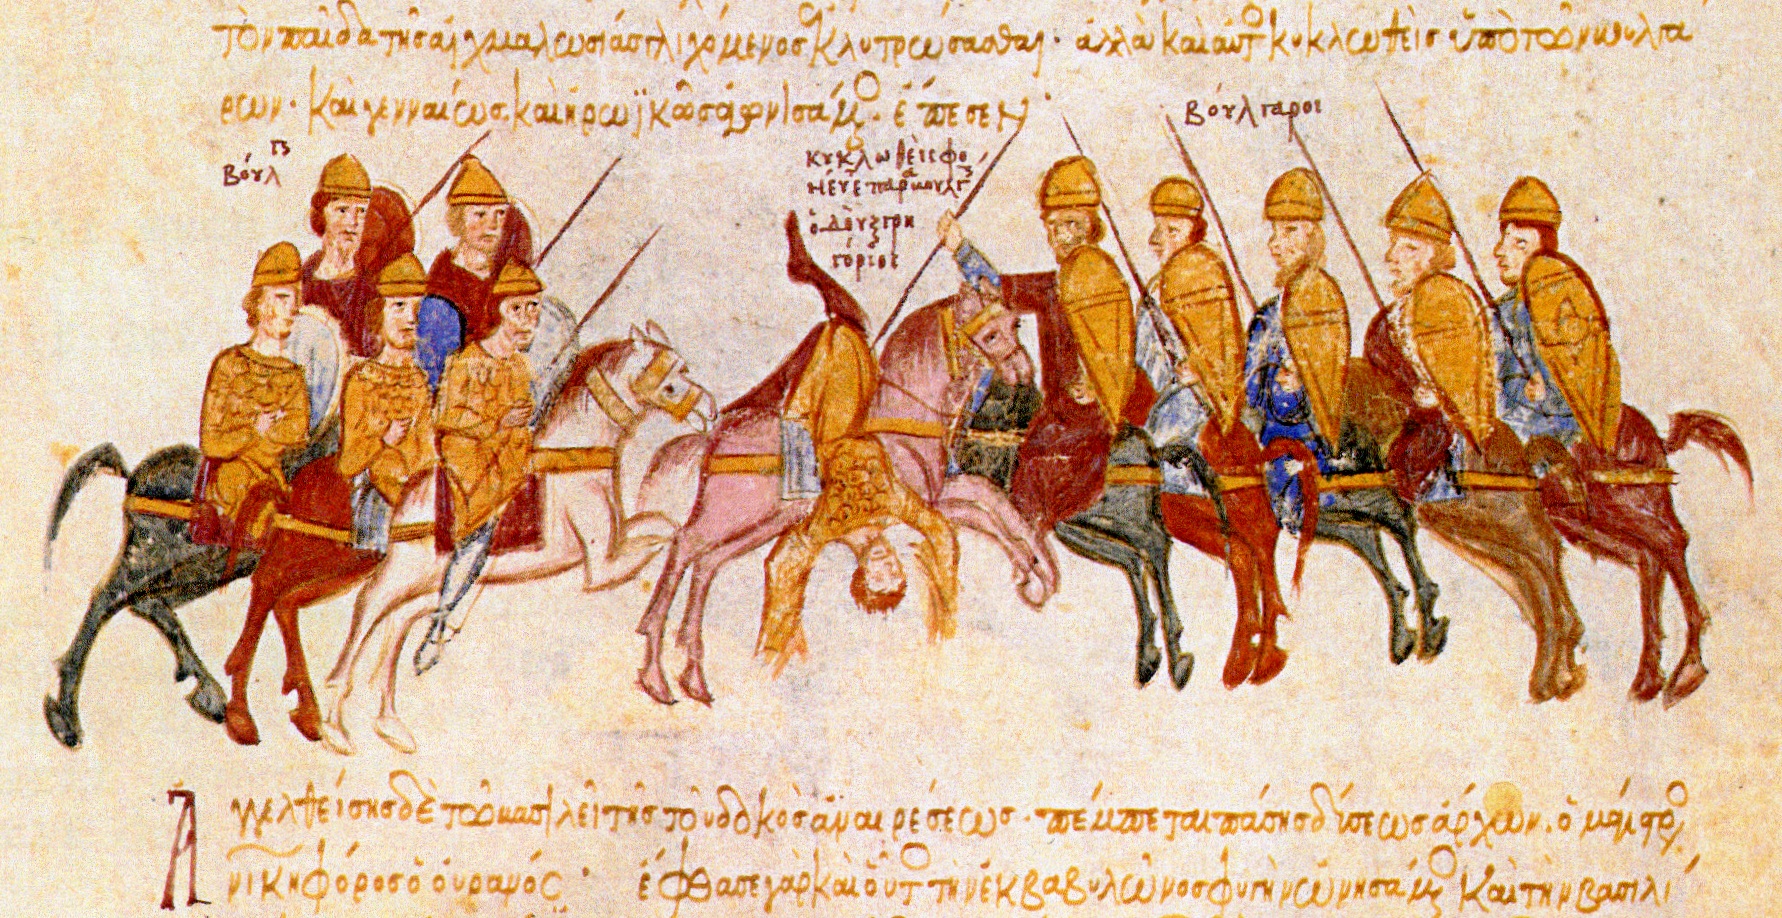 τὸν παῖδα τῆς αἰχμαλωσίας γλιχόμενος ἐκλυτρώσασθαι· ἀλλὰ καὶ αὐτὸ κυκλωθεὶς ὑπὸ τῶν βουλγα
ρων· καὶ γενναίως καὶ ἡρωϊκῶς ἀγωνισάμο· ἔπεσεν·
Βούλγαροι
Βούλγ
κυκλωθεὶς ἐφο
νεύε παρὰ βουλγ
ὁ δοὺξ γρη
γόριος
Ἀ
γγελθείσης δὲ τῶ βασιλεῖ τῆς τοῦ δουκὸς ἀναιρέσεως· πέμπεται πάσης δύσεως ἄρχων, ὁ μάγιστρο
νικηφόρος ὁ οὐρανός· ἔφθασε γὰρ καὶ οὗτο τὴν ἐκ βαβυλῶνος φυγὴν ὠνησάμο καὶ τὴν βασιλί